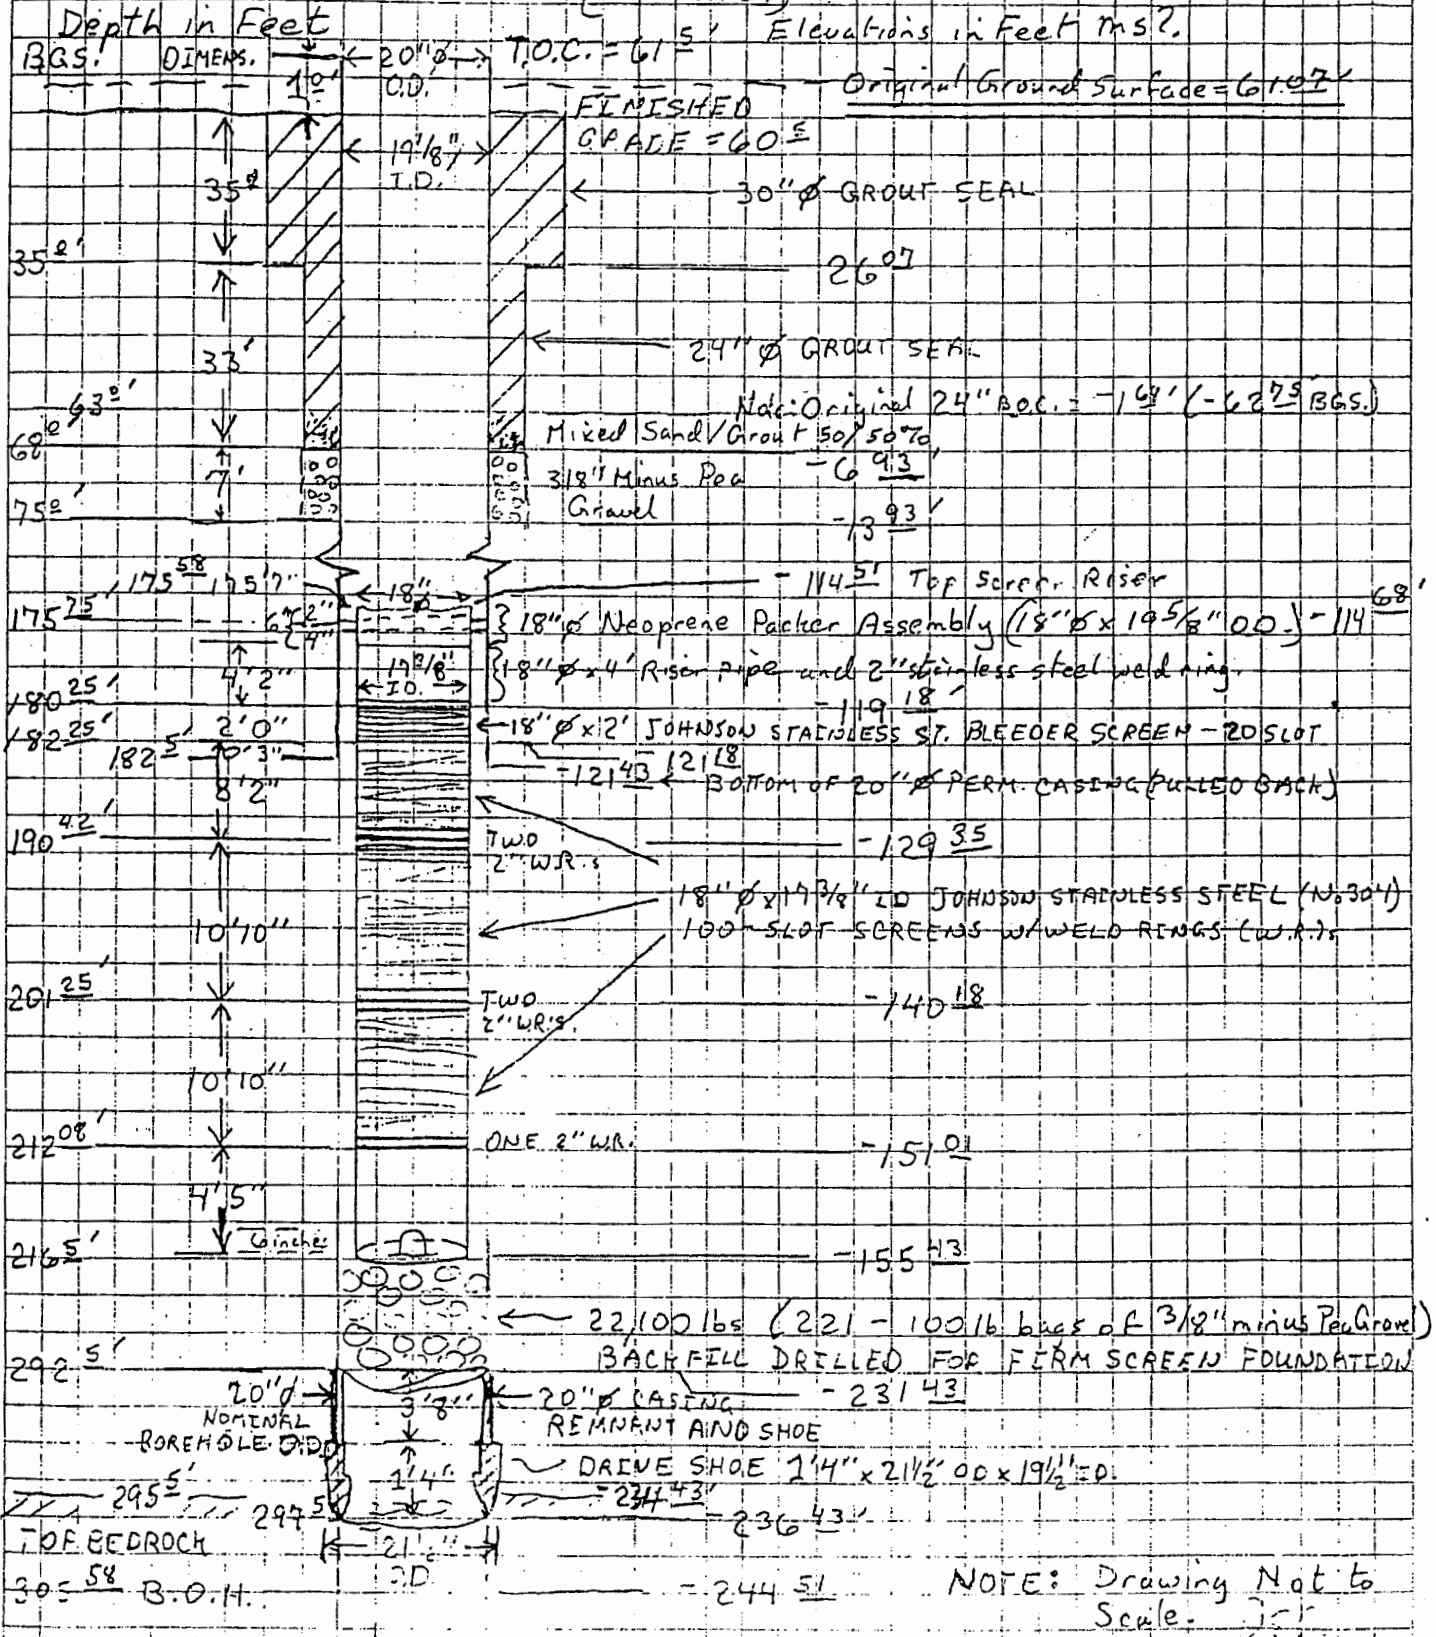 Depth in Feet
Elevations in Feet msl.
B.G.S. DIMENS. 20"ø O.D. T.O.C. = 61 5'
1 0'
Original Ground Surface = 61.07'
FINISHED
GRADE = 60 5
19 1/8"
I.D.
35 0'
30"ø GROUT SEAL
35 0'
26 07
33'
24"ø GROUT SEAL
63 0'
Note: Original 24" B.O.C. = -1 69' (-62 75 BGS.)
68 0'
Mixed Sand/Grout 50/50%
-6 93'
7'
3/8" Minus Pea
Gravel
75 0'
-13 93'
175 58' 175'7" 18"ø
-114 51 Top Screen Riser
175 75' 2" 4"
18"ø Neoprene Packer Assembly (18"ø x 19 5/8" O.D.) -114 68'
4'2" 17 3/8" I.D.
18"ø x 4' Riser pipe and 2" stainless steel weld ring.
180 25'
-119 18'
2'0"
18"ø x 2' JOHNSON STAINLESS ST. BLEEDER SCREEN - 20 SLOT
182 25'
121 18
182 5' 0'3"
-121 43 BOTTOM OF 20"ø PERM. CASING (PULLED BACK)
8'2"
190 42'
TWO
2" W.R.s
-129 35
18"ø x 17 3/8" ID JOHNSON STAINLESS STEEL (No 304)
100-SLOT SCREENS W/WELD RINGS (W.R.)s
10'10"
201 25'
TWO
2" WR'S.
-140 18
10'10"
212 08'
ONE 2" W.R.
-151 01
4'5"
6 inches
216 5'
-155 43
22,100 lbs (221 - 100 lb bags of 3/8" minus Pea Gravel)
BACKFILL DRILLED FOR FIRM SCREEN FOUNDATION
292 5'
-231 43
20"ø
NOMINAL
BOREHOLE O.D.
3'8"
20"ø CASING
REMNANT AND SHOE
1'4"
DRIVE SHOE 1'4" x 21 1/2" OD x 19 1/2" ID
295 5'
-234 43'
297 5
-236 43'
T.OF BEDROCK
21 1/2"
O.D
305 58 B.O.H.
-244 51
NOTE: Drawing Not to
Scale.